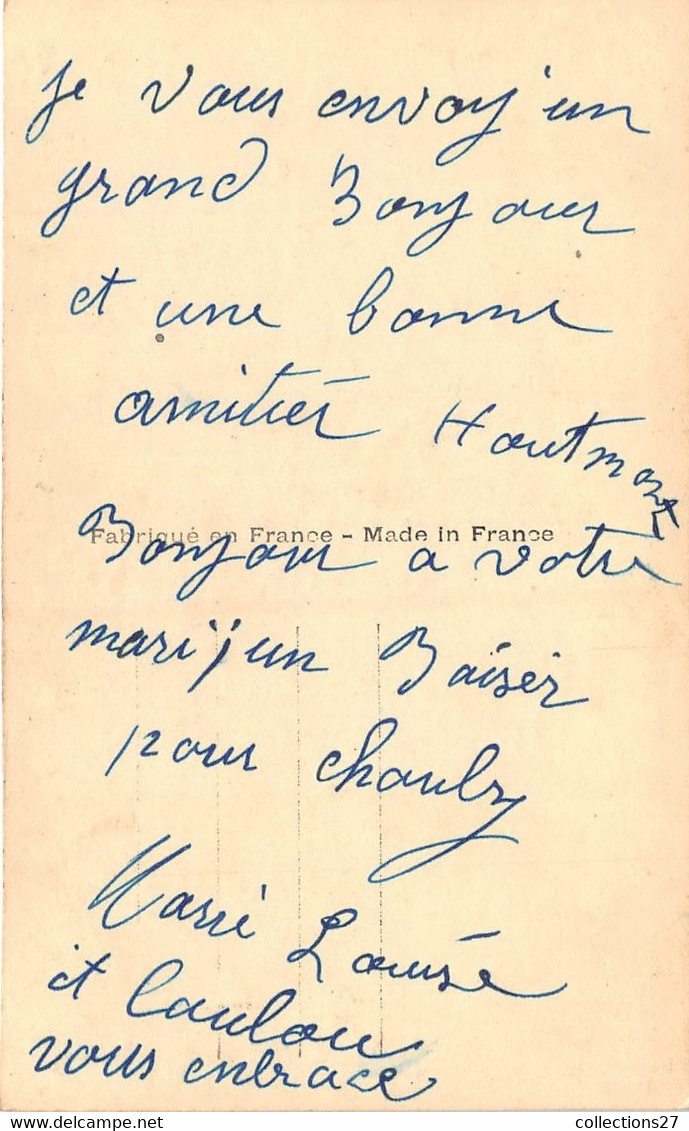 Je vous envoy un
grand Bonjour
et une bonne
amitiér Houtmont
Fabriqué en France - Made in France
Bonjour a votre
mari, un Baiser
pour
Marie Louise
et Loulou
vous enbrace
collections27